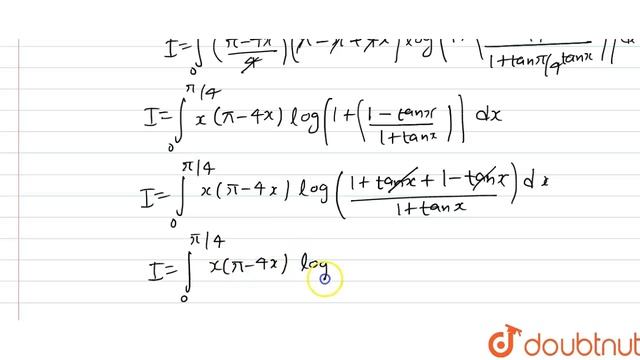 I=∫₀ (π-4x/4) (π-π+4x) log(1+(
1+tanπ/4 tanx
I=∫₀^π/4 x(π-4x) log(1+(1-tanx/1+tanx)) dx
I=∫₀^π/4 x(π-4x) log(1+tanx+1-tanx/1+tanx) dx
I=∫₀^π/4 x(π-4x) log
doubtnut